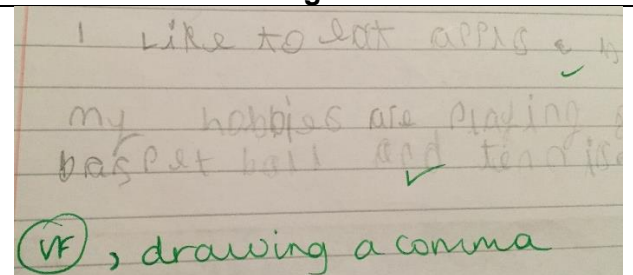 I Like to eat appls
my hobbies are Playing
basPet ball and tennis
VF , drawing a comma